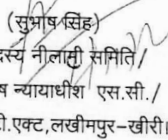 (सुभाष सिंह)
दस्य नीलामी समिति/
ष न्यायाधीश एस.सी./
टी.एक्ट,लखीमपुर-खीरी